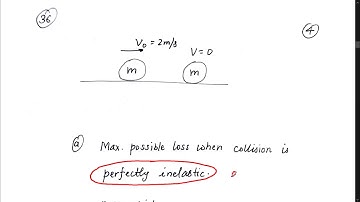 36
4
V₀ = 2m/s
V = 0
m
m
a Max. possible loss when collision is
perfectly inelastic.